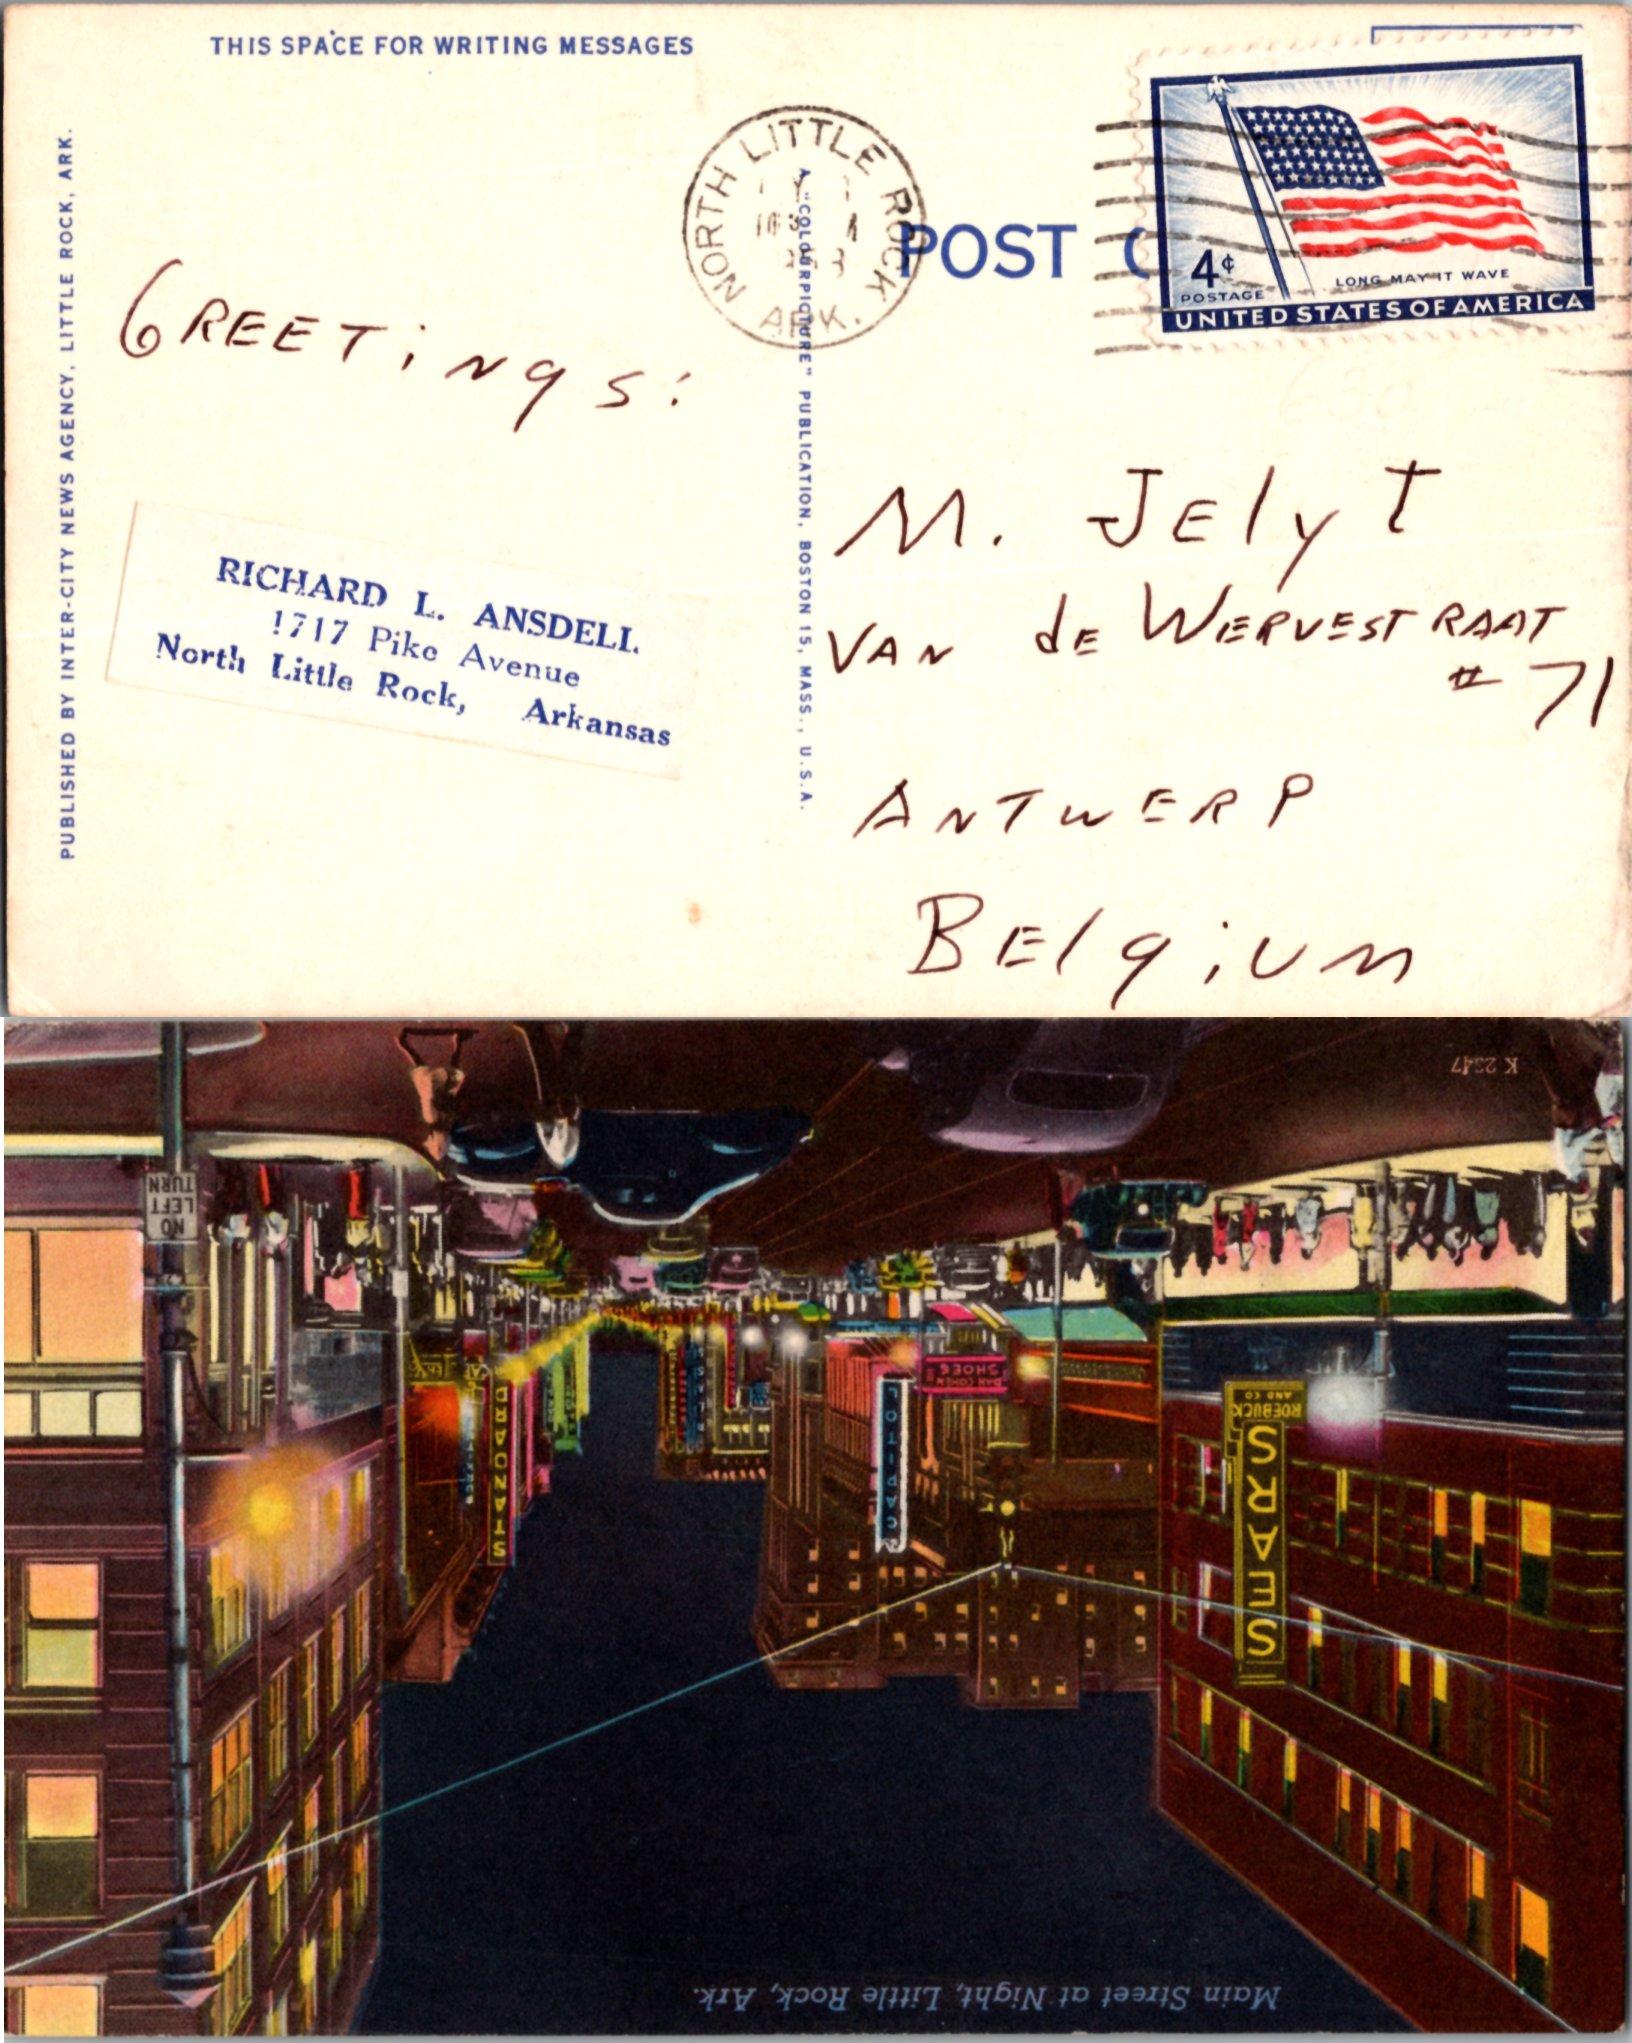 THIS SPACE FOR WRITING MESSAGES
PUBLISHED BY INTER-CITY NEWS AGENCY, LITTLE ROCK, ARK.
NORTH LITTLE ROCK
ARK.
A "COLOURPICTURE" PUBLICATION, BOSTON 15, MASS., U.S.A.
POST
4¢
POSTAGE
LONG MAY IT WAVE
UNITED STATES OF AMERICA
GREETiNgS:
RICHARD L. ANSDELL
1717 Pike Avenue
North Little Rock, Arkansas
M. JElyt
VAN dE WERVESTRAAT
# 71
ANTWERP
BElgiUM
K 2347
NO
LEFT
TURN
STANDARD
CAPITOL
DAN COHEN
SHOES
SEARS
ROEBUCK
AND CO
Main Street at Night, Little Rock, Ark.